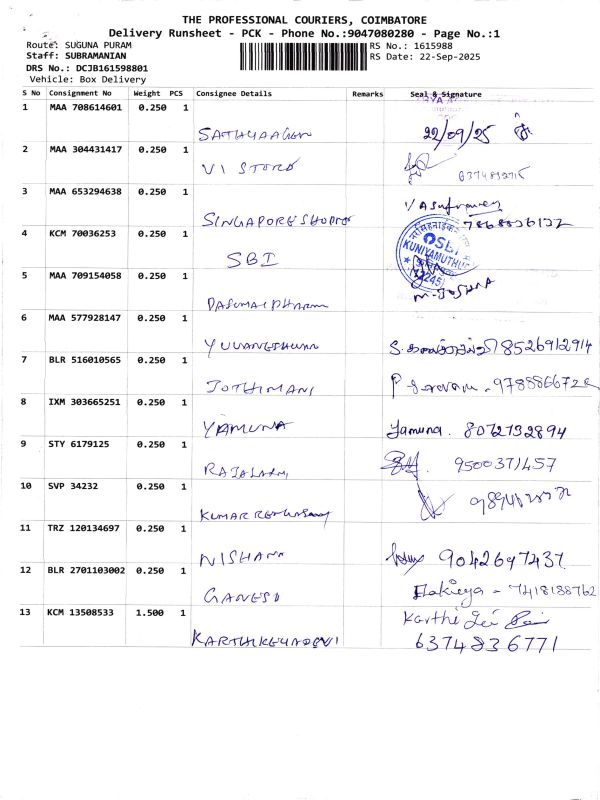 THE PROFESSIONAL COURIERS, COIMBATORE
Delivery Runsheet - PCK - Phone No.:9047080280 - Page No.:1
Route: SUGUNA PURAM RS No.: 1615988
Staff: SUBRAMANIAN RS Date: 22-Sep-2025
DRS No.: DCJB161598801
Vehicle: Box Delivery
S No Consignment No Weight PCS Consignee Details Remarks Seal & Signature
1 MAA 708614601 0.250 1
22/09/25
2 MAA 304431417 0.250 1
VI STORE
3 MAA 653294638 0.250 1
SINGAPORE SHOPPE
4 KCM 70036253 0.250 1
SBI SBI KUNIYAMUTHUR
5 MAA 709154058 0.250 1
M. JOSHNA
6 MAA 577928147 0.250 1
YUVANESHWARAN 8526912914
7 BLR 516010565 0.250 1
JOTHIMANI
8 IXM 303665251 0.250 1
YAMUNA Yamuna. 8072132894
9 STY 6179125 0.250 1
9500371457
10 SVP 34232 0.250 1
11 TRZ 120134697 0.250 1
NISHANA 9042697437
12 BLR 2701103002 0.250 1
GANESH 7418188762
13 KCM 13508533 1.500 1
KARTHIKEYADEVI 6374836771